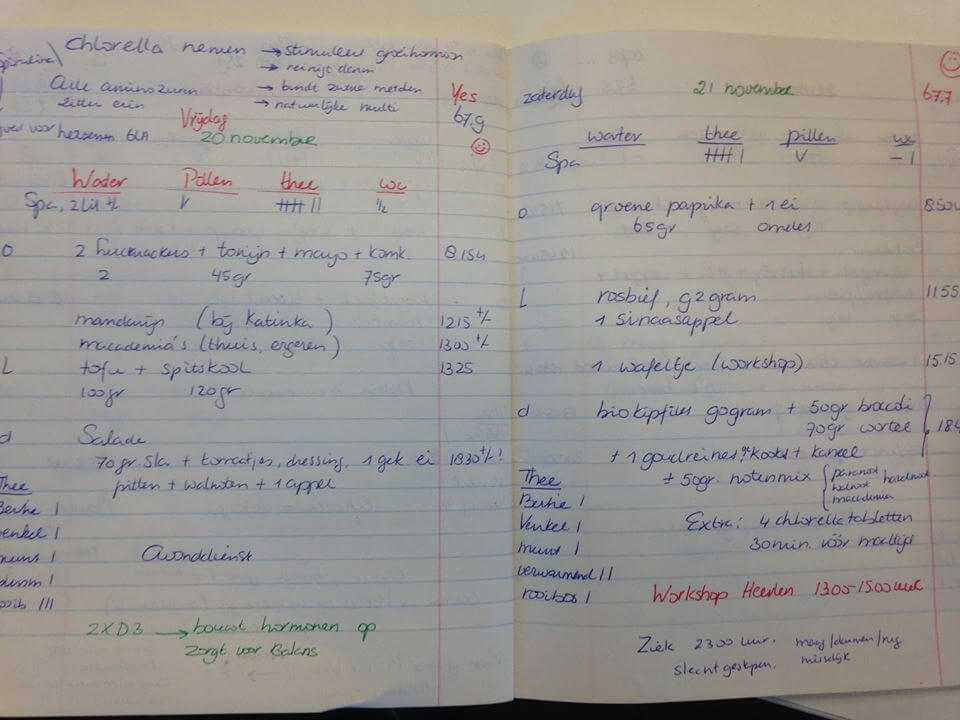 Chlorella nemen → stimuleert groeihormoon
→ reinigt darm
Alle aminozuren → bindt zware metalen
zitten erin → natuurlijke multi
Yes
67.9
goed voor hersenen GLA
Vrijdag
20 november
Water Pillen thee wc
Spa, 2 Lit +/- V |||| || 1/2
O 2 + tonijn + mayo + komk. 8.15u
2 45gr 75gr
mandarijn (bij Katinka) 1215 +/-
macademia's (thuis, ergeren) 1300 +/-
L tofu + spitskool 1325
100gr 120gr
d Salade
70gr. Sla + tomaatjes, dressing, 1 gek ei 1830 +/- !
pitten + walnoten + 1 appel
Thee
venkel I
munt I
darm I
III
Avonddienst
2XD3 → bouwt hormonen op
zorgt voor Balans
zaterdag 21 november 67.7
water thee pillen wc
Spa |||| | V – I
O groene paprika + 1 ei 8.50u
65gr omelet
L rosbief, 92 gram 1155
1 Sinaasappel
1 wafeltje (workshop) 15.15
d bio kipfilet 90gram + 50gr brocoli
70gr wortel
184
+ 1 goudreinet + kaneel
± 50gr. notenmix paranoot
walnoot hazelnoot
macademia
Thee
I
Venkel I
munt I
verwarmend II
rooibos I
Extra: 4 chlorella tabletten
30 min. vóór maaltijd
Workshop Heerlen 1300-15.00 uur
Ziek 2300 uur. maag/darmen/rug
slecht geslapen. misselijk